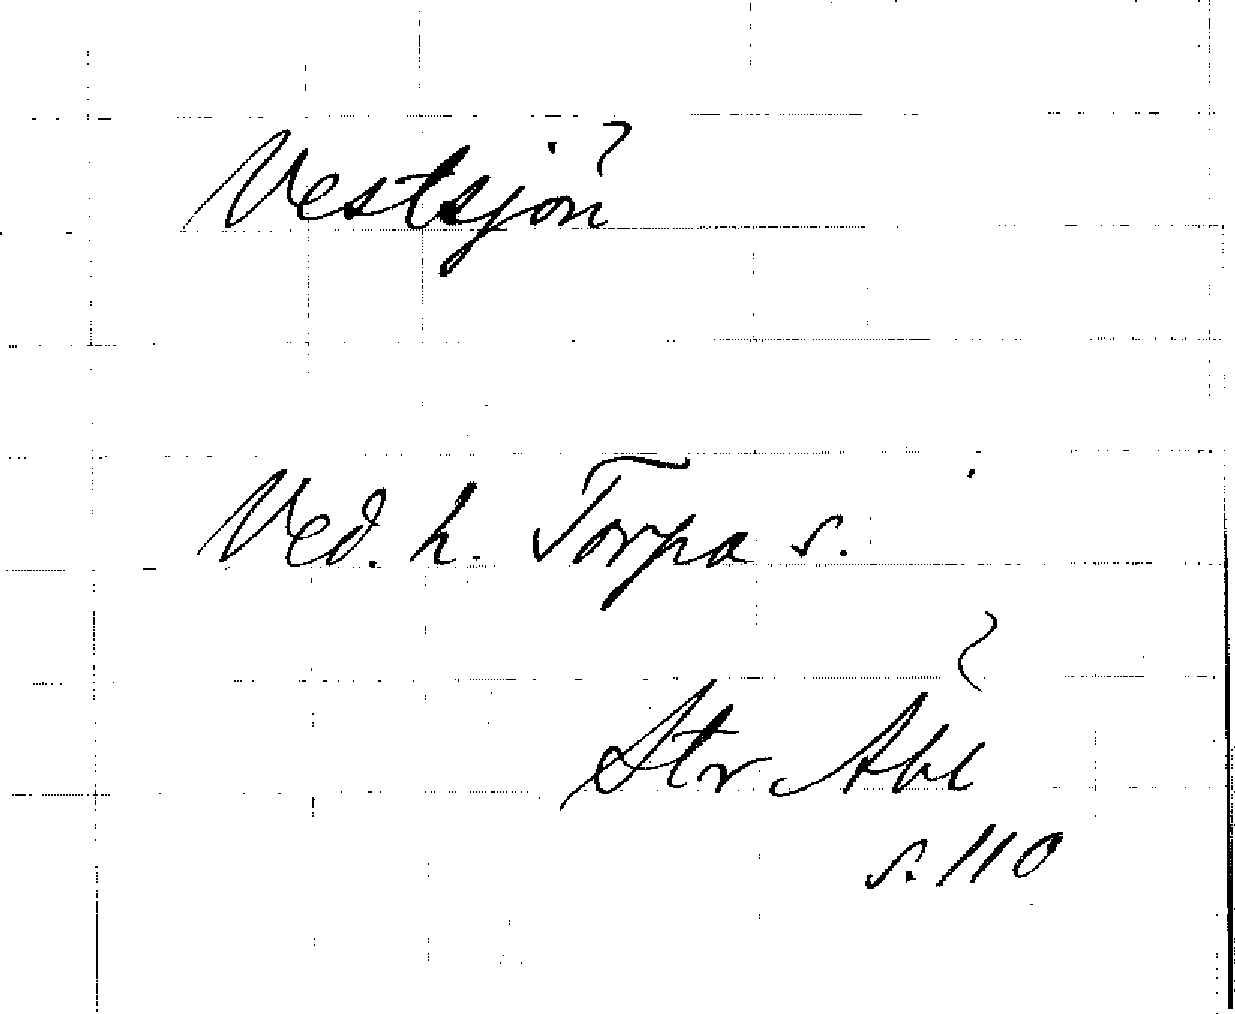 Vestsjön
Ved. h. Torpa s.
Str. Åbl
s. 110